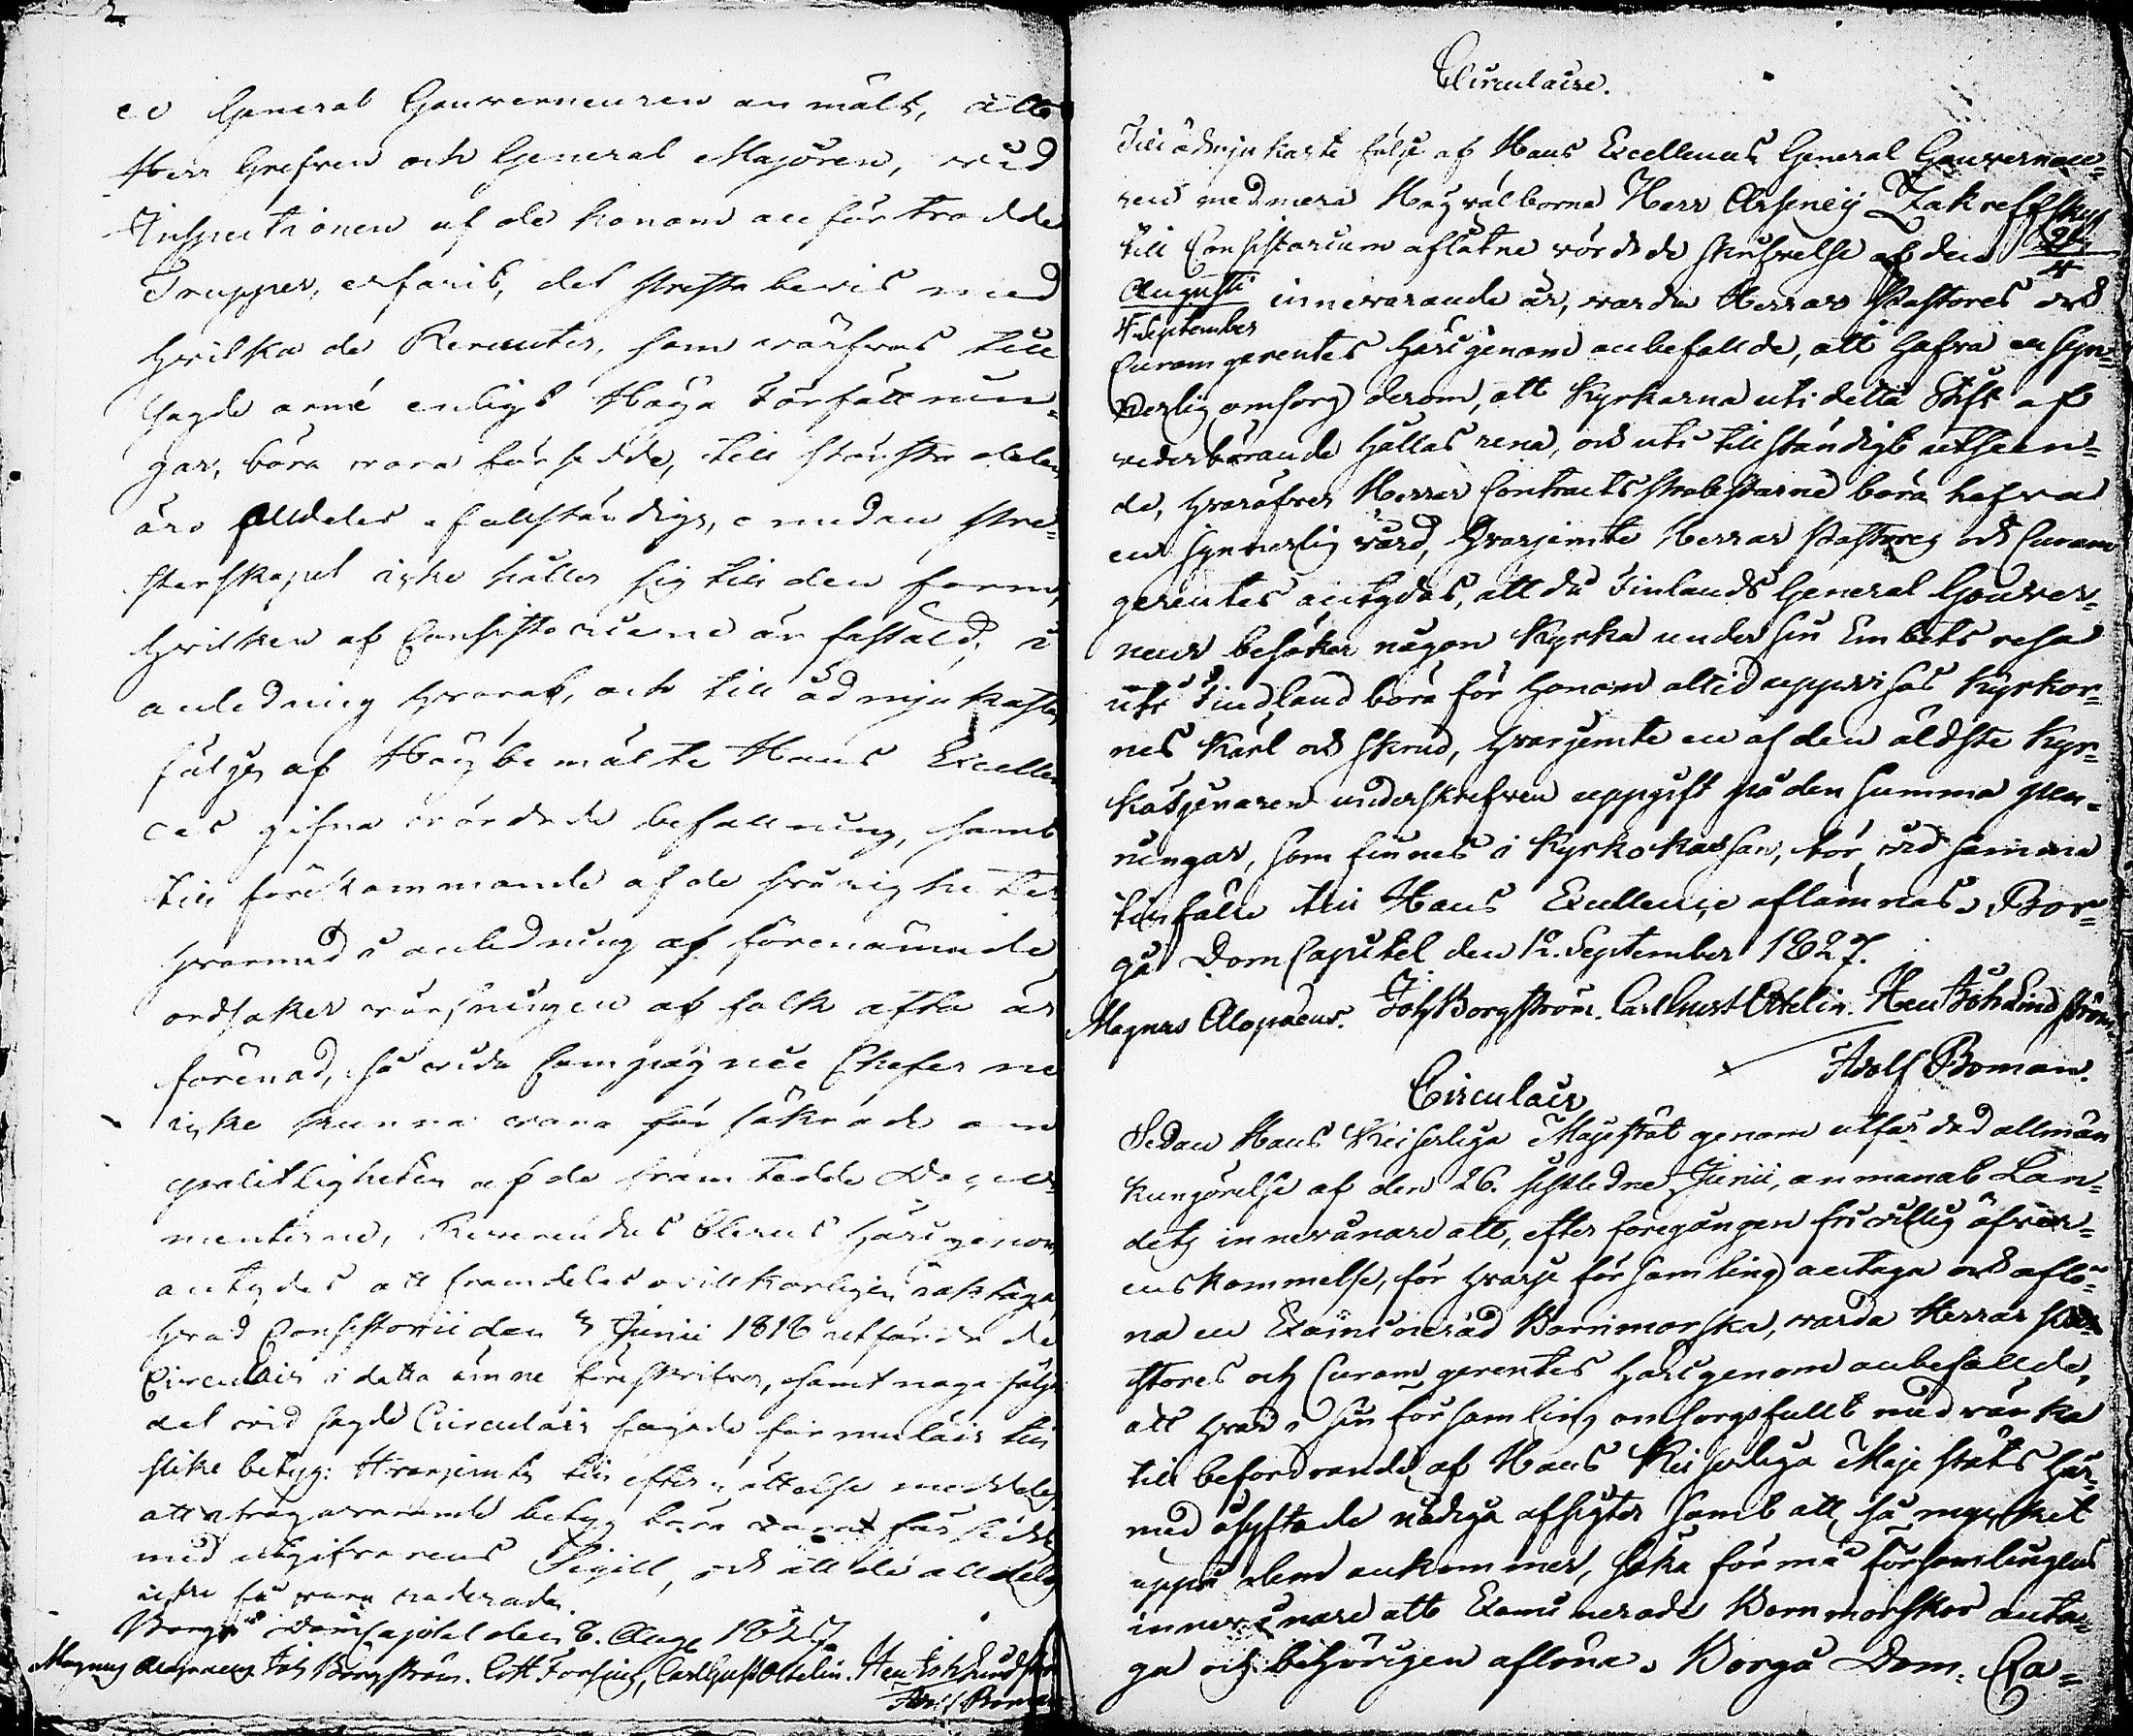 2
General Gouverneuren anmält, att
Herr Grefven och General Majoren, vid
Inspectionen af de honom anförtrodda
Trupper, erfarit, det Prestabevis med
hvilka de Recruter, som värfvas till
sagde armé enligt Höga Författnin-
gar, böra vara försedde, till största delen
äro alldeles ofullständige, emedan Pre-
sterskapet icke håller sig till den form,
hvilken af Consistorium är faststäld, i
anledning hvaraf, och till ödmjukaste
följe af Högbemälte Hans Excellen-
ces gifna vördade befallning, samt
till förekommande af de svårigheter
hvarmed i anledning af förenämnde
orsaker värfningen af folk ofta är
förenad, så vida Compagnie Cheferne
icke kunna vara försäkrade om
pålitligheten af de framtedde Docu-
menterne, Reverendus Clerus härigenom
antydes att framdeles ovillkorligen iakttaga
hvad Consistorii den 3 Junii 1818 utfärdade
Circulair i detta ämne föreskrifver, samt noga följa
det vid sagde Circulair fogade formulair till
slike betyg: Hvarjemte till efterrättelse meddelas
att ifrågavarande betyg böra vara försedde
med utgifvarens Sigill, och att de alldeles
icke få vara raderade.
Borgå DomCapitel den 8. Aug 1827
Magnus Alopaeus Joh Borgström. Forsius, Carl Gust Ottelin. Hen Joh Lindström
Adolf Boman
Circulaire.
Till ödmjukaste följe af Hans Excellences General Gouverneu-
rens med mera Högvälborne Herr Arseney Zakreffskys
till Consistorium aflåtne vördade skrifvelse af den
Augusti innevarande år, varda Herrar Pastores och
4 September
Curam gerentes härigenom anbefallde, att hafva en syn-
nerlig omsorg derom, att Kyrkorna uti detta Stift af
vederbörande hållas rena, och uti tillständigt utseen-
de, hvaröfver Herrar Contracts Prostarne böra hafva
en synnerlig vård, hvarjemte Herrar Pastores och Curam
gerentes antydas, att då Finlands General Gouver-
neur besöker någon Kyrka under sin Embets resa
uti Findland böra för honom altid uppvisas Kyrkor-
nes Kärl och skrud, hvarjemte en af den äldste Kyr-
kotjenaren underskrefven uppgift på den summa pen-
ningar, som finnes i Kyrkokassan, bör vid samma
tillfälle till Hans Exellence aflämnas. Bor-
gå Dom Capitel den 12. September 1827.
Magnus Alopaeus. Joh Borgström. Carl Gust Ottelin. Hen Joh Lindström
Adolf Boman.
Circulair
Sedan Hans Keiserliga Majestät genom utfärdad allmän
kungörelse af den 26. sistledne Junii, anmanat Lan-
dets innevånare att, efter föregången frivillig öfver-
enskommelse, för hvarje församling antaga och aflö-
na en Examinerad Barnmorska, varda Herrar Pa-
stores och Curam gerentes härigenom anbefallde,
att hvar i sin församling omsorgsfullt medvärka
till befordrande af Hans Keiserliga Majestäts här-
med åsyftade nådiga afsigter samt att, så mycket
uppå dem ankommer, söka förmå församlingens
innevånare att Examinerade Barnmorskor anta-
ga och behörigen aflöna. Borgå Dom. Ca-